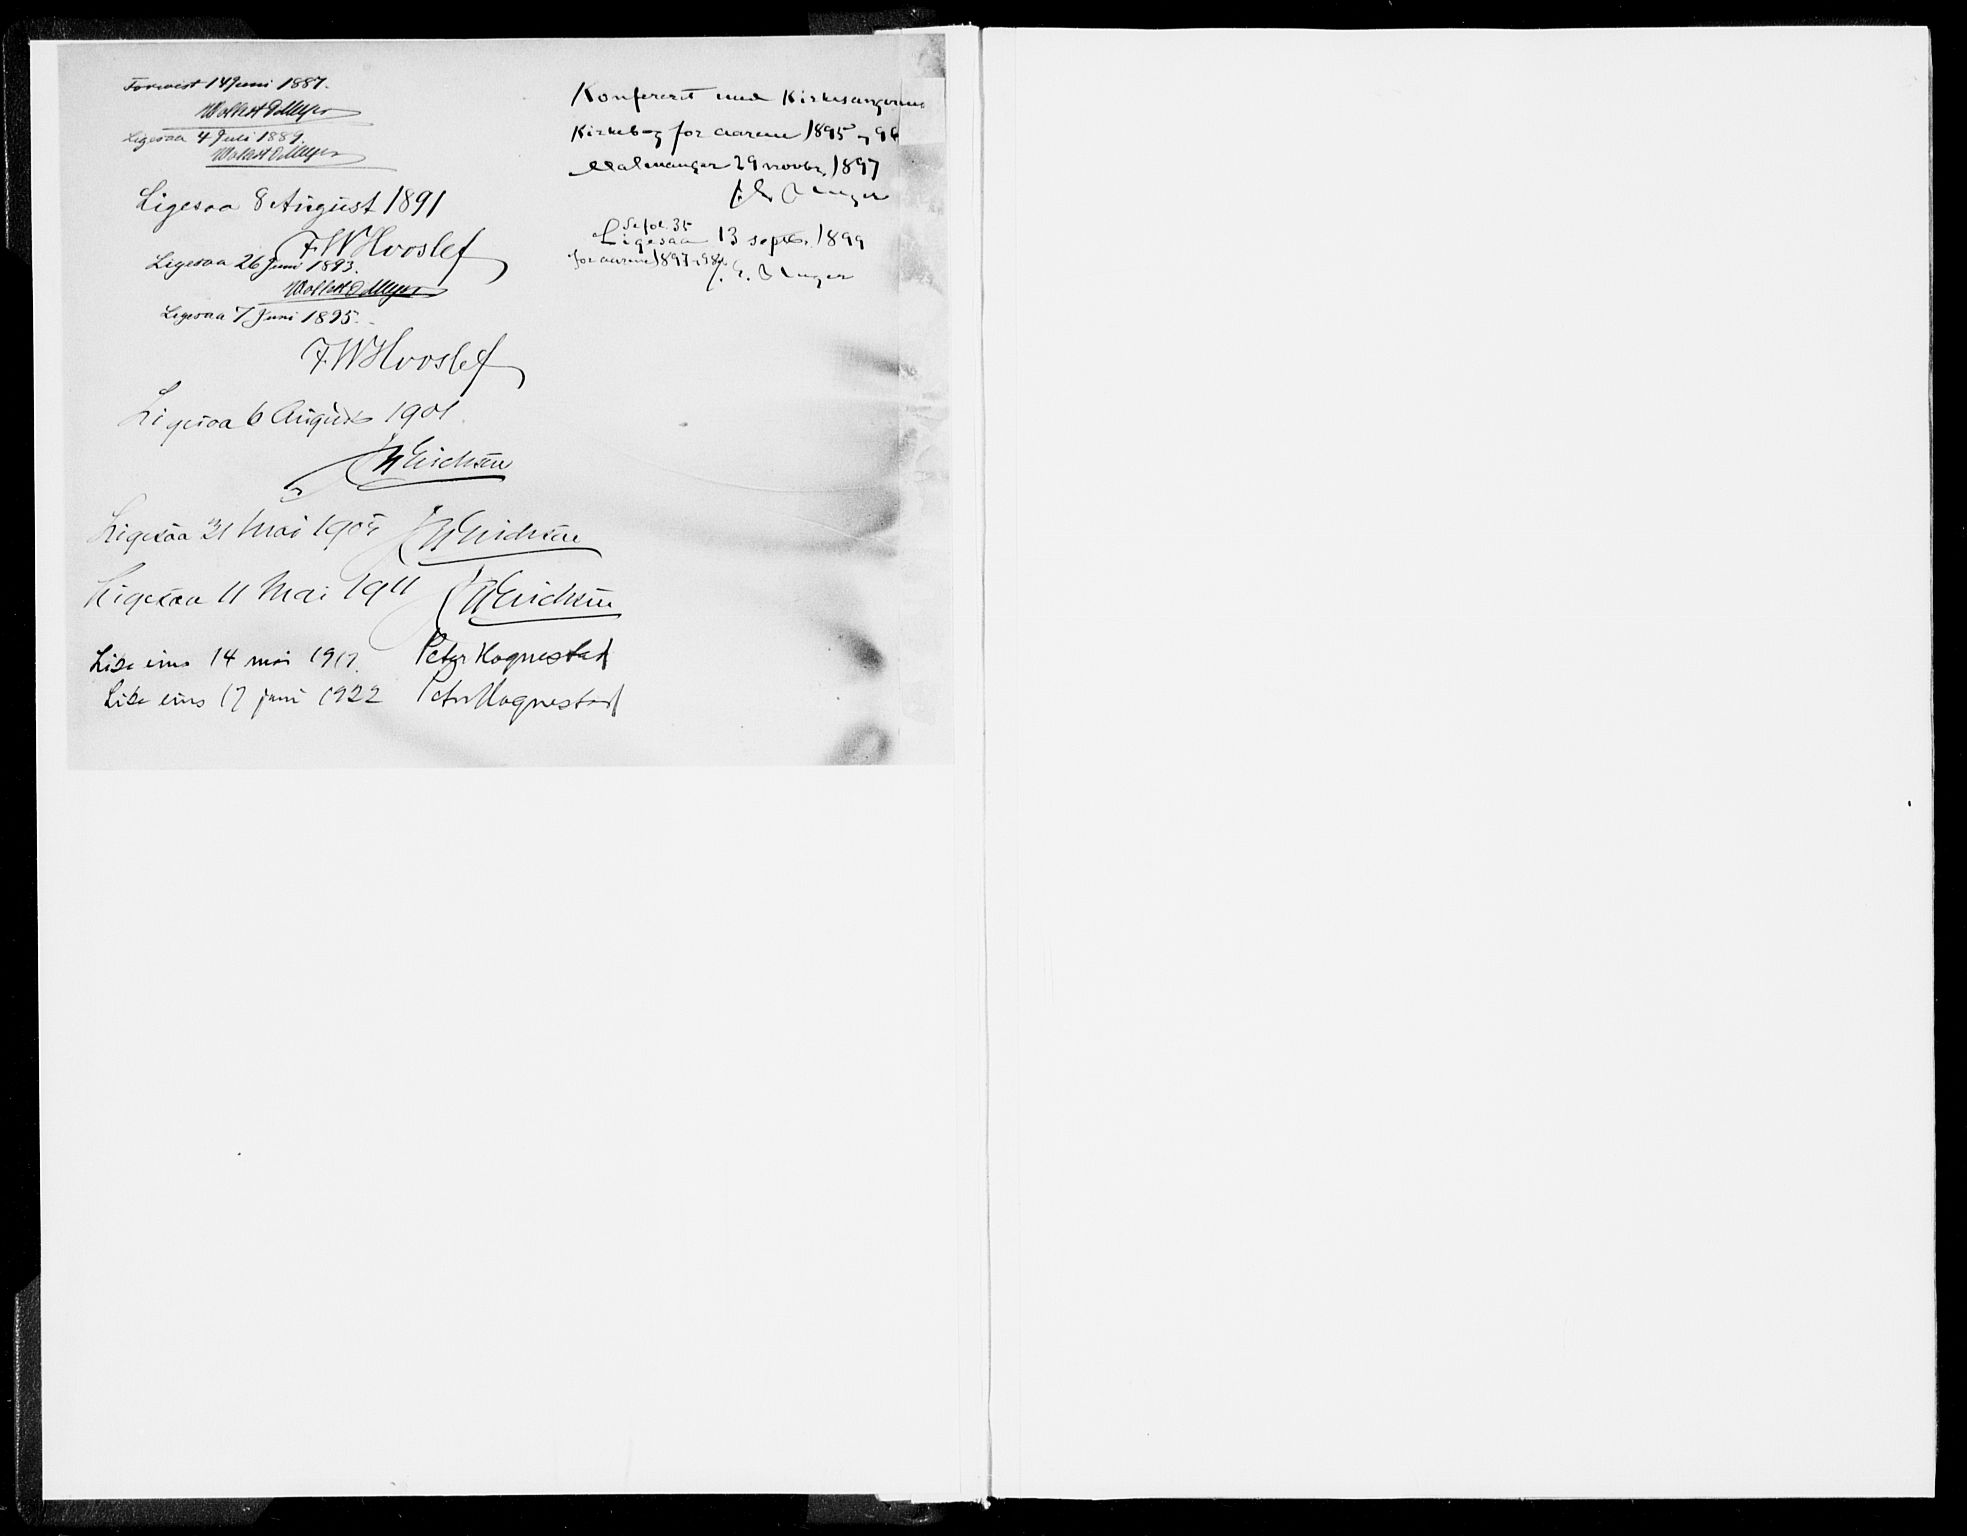 Forevist 14 Juni 1887.
Wollert D Meyer
Ligesaa 4 Juli 1889.
Wollert D Meyer
Ligesaa 8 August 1891
F. W Hvoslef
Ligesaa 26 Juni 1893.
Wollert D Meyer
Ligesaa 7 Juni 1895.
F. W Hvoslef
Ligesaa 6 August 1901.
Erichsen
Ligesaa 31 Mai 1905 Erichsen
Ligesaa 11 Mai 1911 Erichsen
Like eins 14 mai 1917. Peter Hognestad
Like eins 17 juni 1922 Peter Hognestad
Konfereret med Kirkesangerens
Kirkebog for aarene 1895 og 96
Malmanger 29 novbr. 1897
Se fol. 35
Ligesaa 13 septb. 1899
for aarene 1897-98